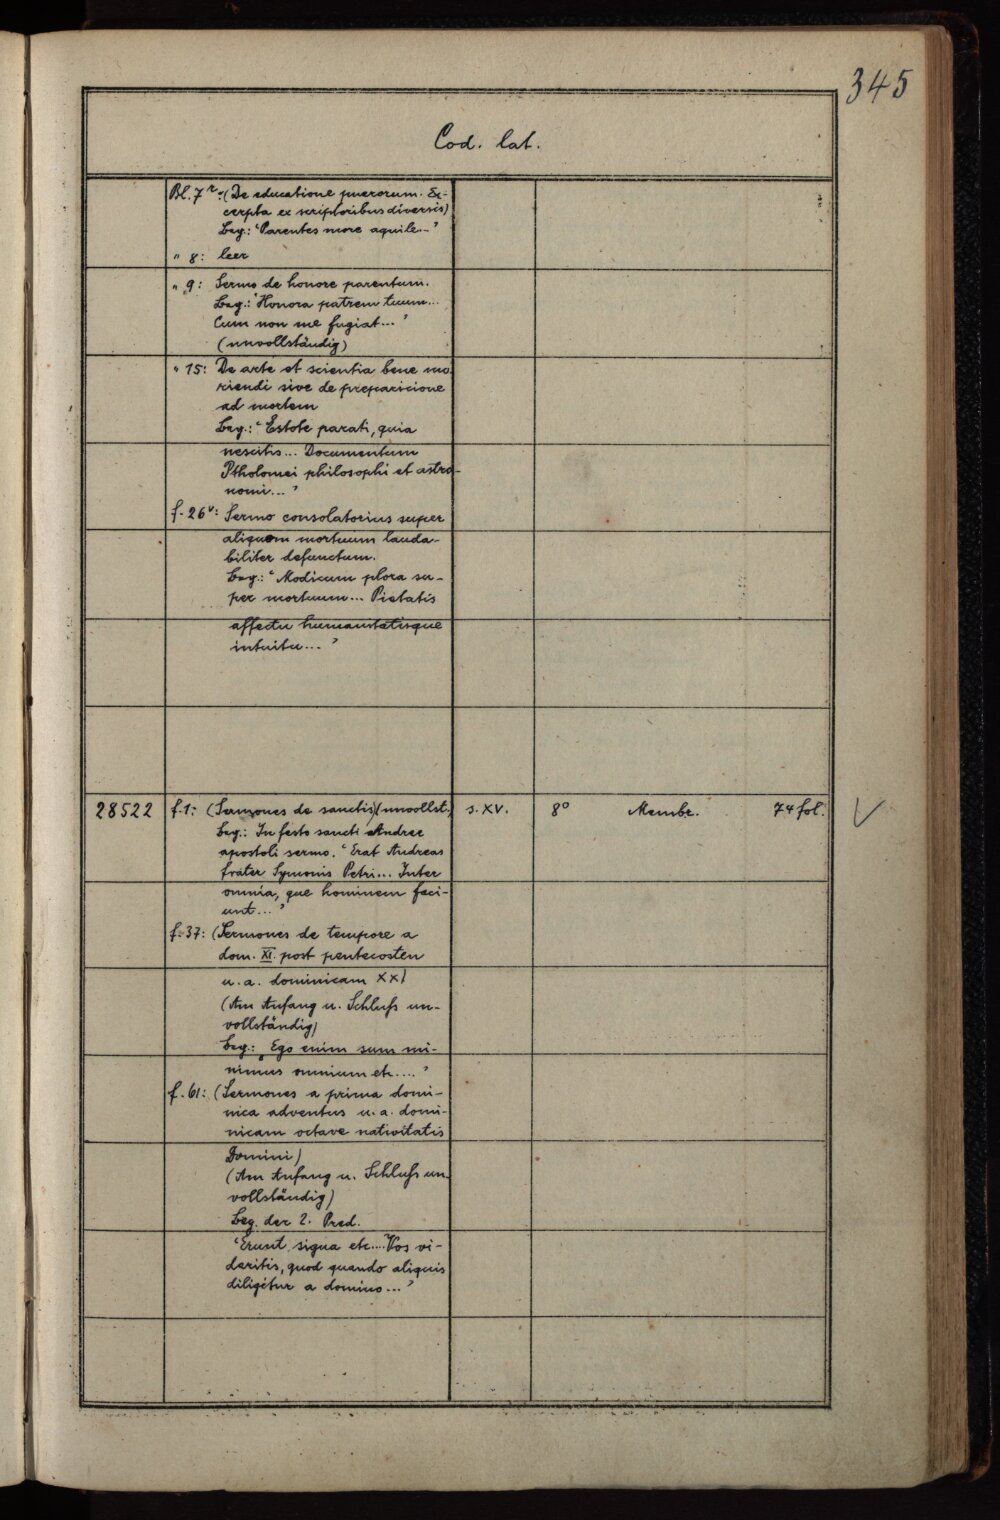 345
Cod. lat.
Bl. 7r: (De educatione puerorum. Ex-
cerpta ex scriptoribus diversis)
Beg.: "Parentes more aquile..."
" 8: leer
" 9: Sermo de honore parentum.
Beg.: "Honora patrem tuum...
Cum non me fugiat..."
(unvollständig)
" 15: De arte et scientia bene mo-
riendi sive de preparicione
ad mortem
Beg.: "Estote parati, quia
nescitis... Documentum
Ptholomei philosophi et astro-
nomi..."
f. 26v: Sermo consolatorius super
aliquem mortuum lauda-
biliter defunctum.
Beg.: "Modicum plora su-
per mortuum... Pietatis
affectu humanitatisque
intuitu..."
28522 f. 1: (Sermones de sanctis) (unvollst.) s. XV. 8° Membr. 74 fol. V
Beg.: In festo sancti Andree
apostoli sermo. "Erat Andreas
frater Symonis Petri... Inter
omnia, que hominem faci-
unt..."
f. 37: (Sermones de tempore a
dom. XI. post pentecosten
u. a. dominicam XXI
(Am Anfang u. Schluß un-
vollständig)
Beg.: "Ego enim sum mi-
nimus omnium etc...."
f. 61: (Sermones a prima domi-
nica adventus u. a. domi-
nicam octave nativitatis
Domini)
(Am Anfang u. Schluß un-
vollständig)
Beg. der 2. Pred.
"Erunt signa etc.... Vos vi-
deritis, quod quando aliquis
diligetur a domino..."